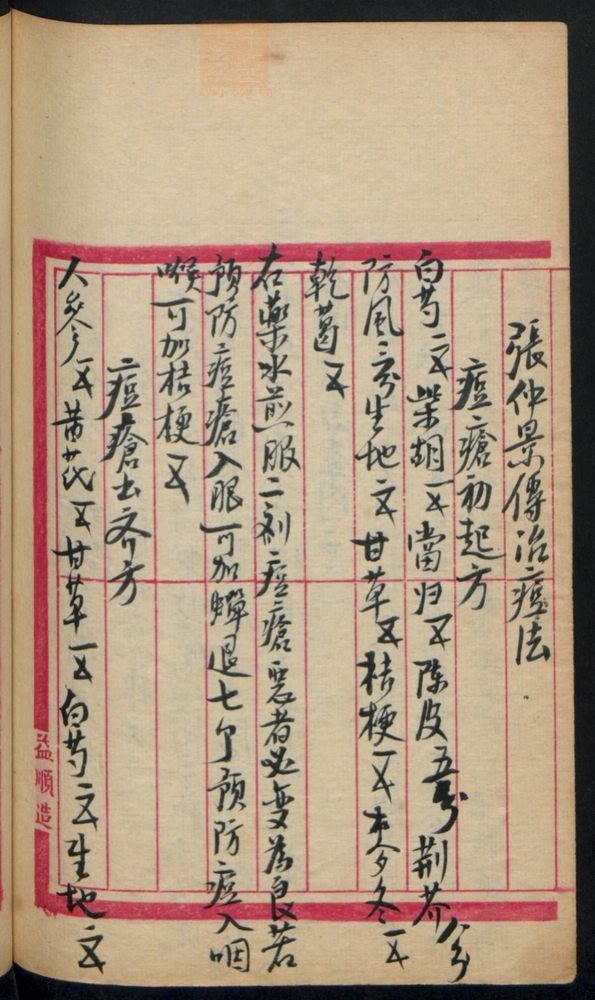 張仲景傳治痘法
痘瘡初起方
白芍二文柴胡一文當归文陳皮五分荆芥八分
防風三分生地二文甘草文桔梗一文麦冬一文
乾葛文
右藥水煎服二剂痘瘡惡者必变為良若
預防痘瘡入眼可加蟬退七个預防痘入咽
喉可加桔梗文
痘瘡出齐方
人參文黄芪一文甘草一文白芍二文生地二文
益順造